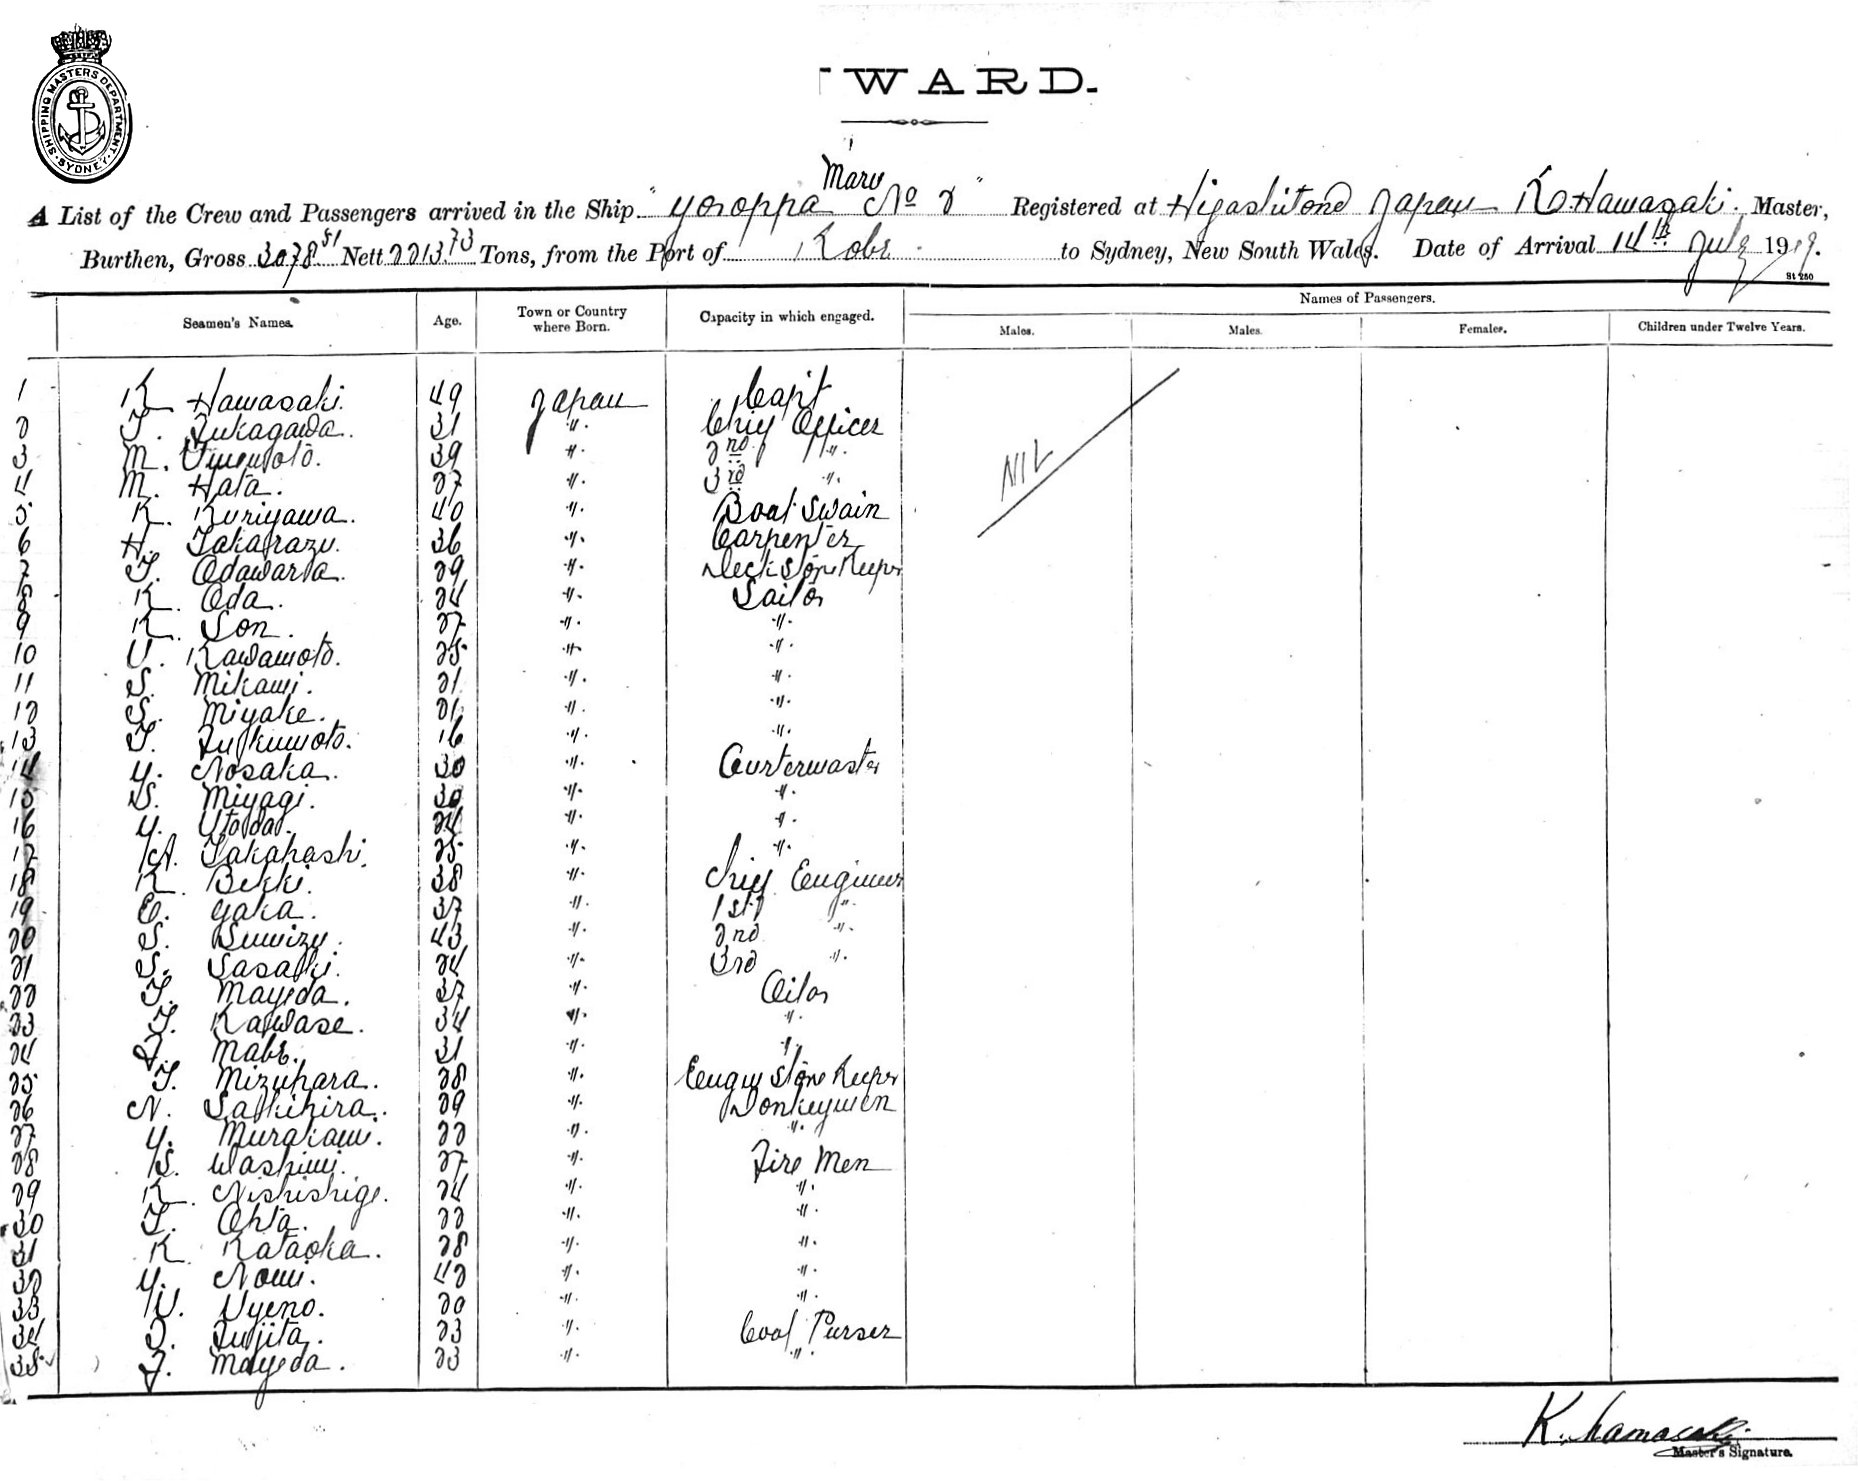 SHIPPING MASTERS DEPARTMENT · SYDNEY ·
WARD.
Maru
A List of the Crew and Passengers arrived in the Ship "Yoroppa No 2" Registered at Japan K. Hamasaki. Master,
Burthen, Gross 3278.51 Nett 2213.73 Tons, from the Port of Kobe to Sydney, New South Wales. Date of Arrival 14th July 1919.
St 250
Seamen's Names. Age. Town or Country where Born. Capacity in which engaged. Names of Passengers.
Males. Males. Females. Children under Twelve Years.
1 K. Hamasaki. 49 Japan Capt
2 T. Fukagawa. 31 ". Chief Officer
3 M. Umemoto. 39 ". 2nd ".
4 M. Hata. 27 ". 3rd ".
NIL
5 K. Kuriyama. 40 ". Boat Swain
6 H. Takarazu. 36 ". Carpenter
7 T. Odawara. 29 ". Deck Store Keeper
8 K. Oda. 24 ". Sailor
9 K. Son. 27 ". ".
10 U. Kawamoto. 25 ". ".
11 S. Mikami. 21 ". ".
12 S. Miyake. 21 ". ".
13 T. Fukumoto. 16 ". ".
14 Y. Nosaka. 30 ". Qurtermaster
15 S. Miyagi. 30 ". ".
16 Y. 24 ". ".
17 A. Takahashi. 25 ". ".
18 K. Bekki. 38 ". Chief Engineer
19 E. Yaka. 37 ". 1st ".
20 S. 43 ". 2nd ".
21 S. Sasaki. 24 ". 3rd ".
22 T. Mayeda. 37 ". Oiler
23 T. Kawase. 34 ". ".
24 T. Mabe. 31 ". ".
25 T. Mizuhara. 28 ". Engin Store Keeper
26 N. Sakihira. 29 ". Donkeymen
27 Y. Murakami. 22 ". ".
28 S. Washimi. 27 ". Fire Men
29 K. Nishishige. 24 ". ".
30 T. Ohta. 22 ". ".
31 K. Kataoka. 28 ". ".
32 Y. Nomi. 42 ". ".
33 U. Uyeno. 20 ". ".
34 Fujita. 23 ". Coal Purser
35 T. Mayeda. 23 ". ".
K. Hamasaki.
Master's Signature.